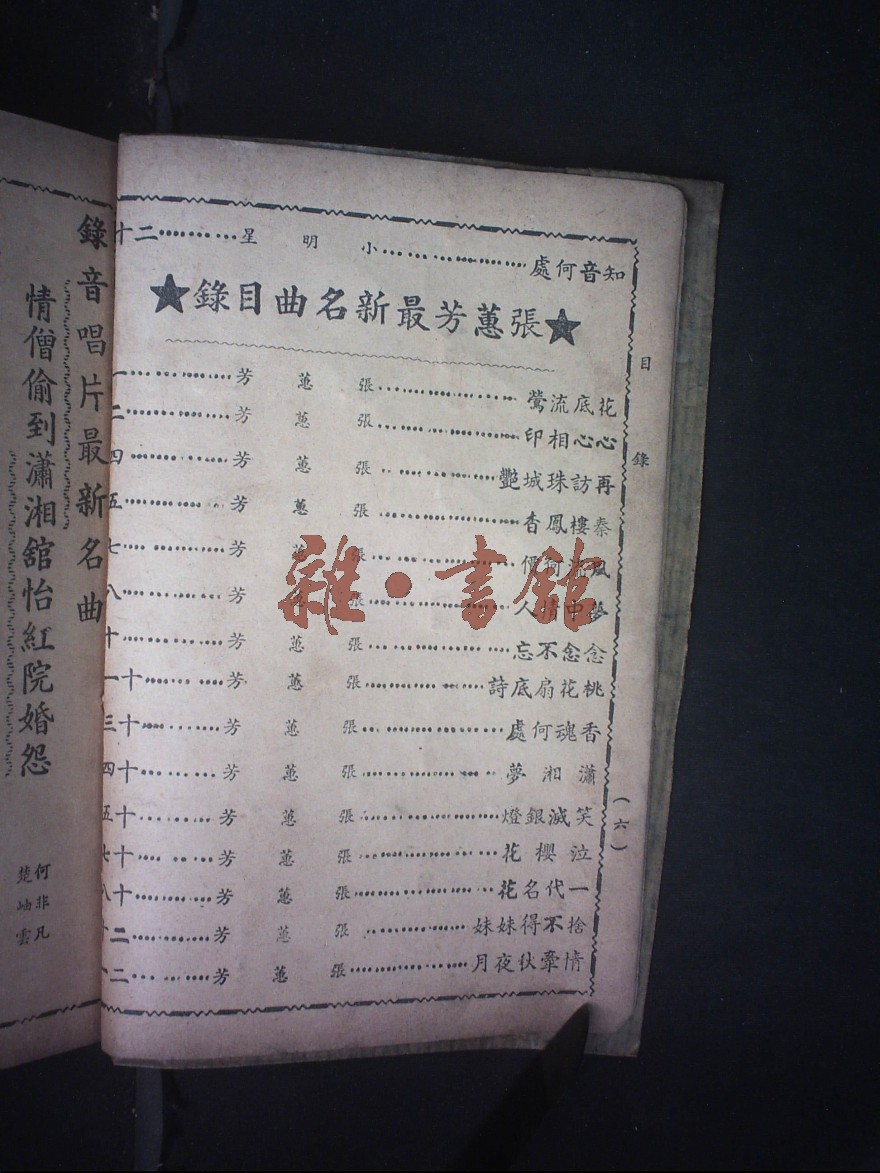 知音何處……小明星……二十
★張蕙芳最新名曲目錄★
花底流鶯……張蕙芳……一
心心相印……張蕙芳……二
再訪珠城艷……張蕙芳……四
秦樓鳳香……張蕙芳……五
風流何價……張蕙芳……七
夢中情人……張蕙芳……八
念念不忘……張蕙芳……十
桃花扇底詩……張蕙芳……十一
香魂何處……張蕙芳……十三
瀟湘夢……張蕙芳……十四
笑滅銀燈……張蕙芳……十五
泣櫻花……張蕙芳……十七
一代名花……張蕙芳……十八
捨不得妹妹……張蕙芳……二十
情牽秋夜月……張蕙芳……二
目錄
(六)
錄音唱片最新名曲
情僧偷到瀟湘舘怡紅院婚怨
何非凡
楚岫雲
雜·書館